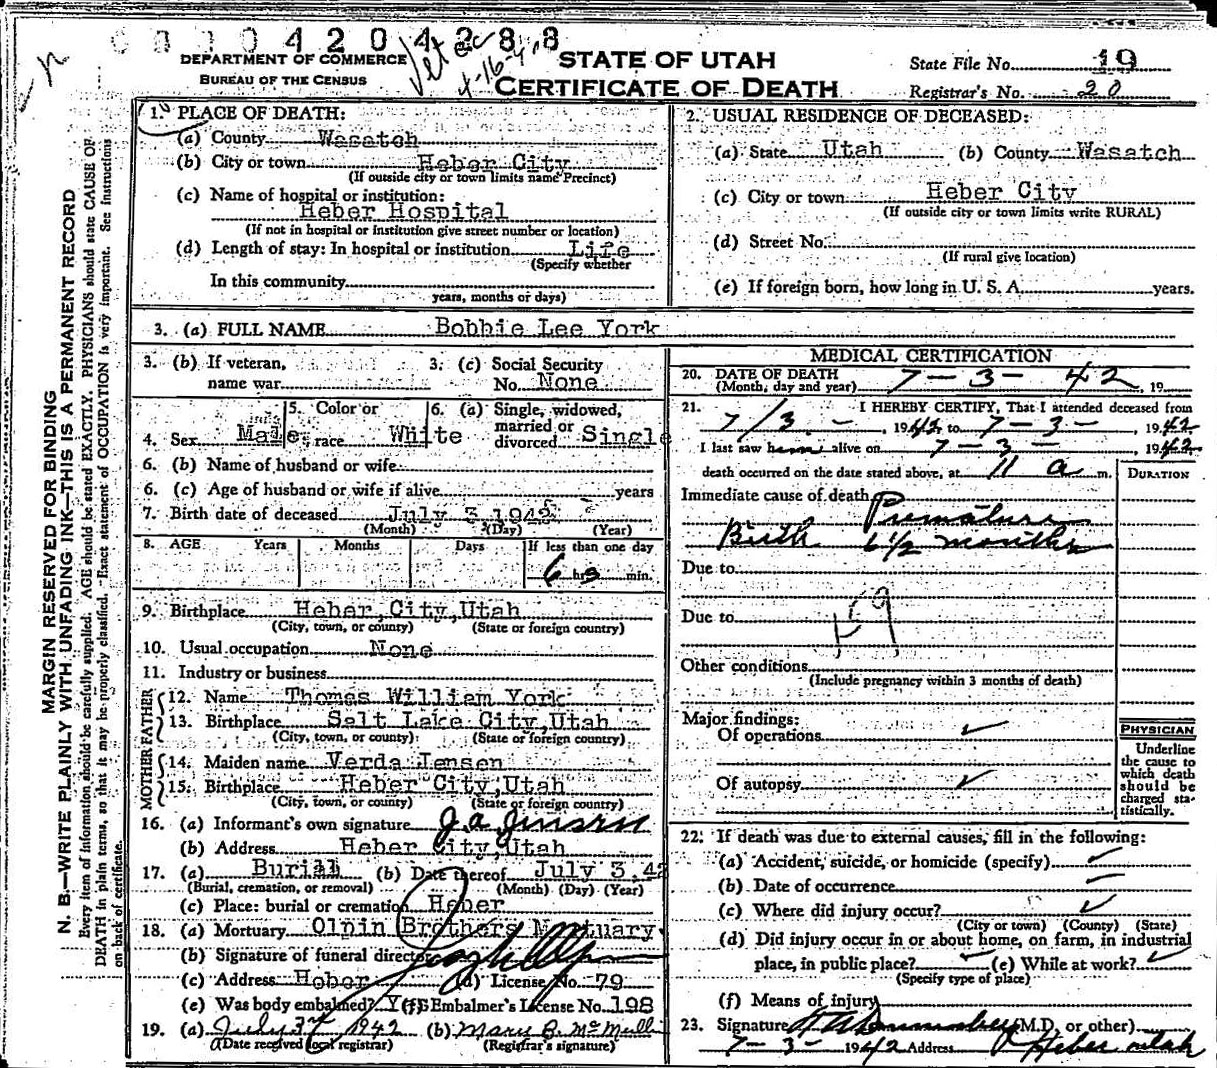 0 0 1 0 4 2 0 4 2 8 8
DEPARTMENT OF COMMERCE
BUREAU OF THE CENSUS
STATE OF UTAH
CERTIFICATE OF DEATH
State File No. 19
Registrar's No. 20
MARGIN RESERVED FOR BINDING
N. B.—WRITE PLAINLY WITH UNFADING INK—THIS IS A PERMANENT RECORD
Every item of information should be carefully supplied. AGE should be stated EXACTLY. PHYSICIANS should state CAUSE OF
DEATH in plain terms, so that it may be properly classified. Exact statement of OCCUPATION is very important. See instructions
on back of certificate.
1. PLACE OF DEATH:
(a) County Wasatch
(b) City or town Heber City
(If outside city or town limits name Precinct)
(c) Name of hospital or institution:
Heber Hospital
(If not in hospital or institution give street number or location)
(d) Length of stay: In hospital or institution Life
(Specify whether
In this community
years, months or days)
2. USUAL RESIDENCE OF DECEASED:
(a) State Utah (b) County Wasatch
(c) City or town Heber City
(If outside city or town limits write RURAL)
(d) Street No.
(If rural give location)
(e) If foreign born, how long in U. S. A. years.
3. (a) FULL NAME Bobbie Lee York
3. (b) If veteran, name war
3. (c) Social Security No. None
4. Sex Male
5. Color or race White
6. (a) Single, widowed, married or divorced Single
6. (b) Name of husband or wife
6. (c) Age of husband or wife if alive years
7. Birth date of deceased July 3 1942
(Month) (Day) (Year)
8. AGE Years Months Days If less than one day
6 hrs min.
9. Birthplace Heber City, Utah
(City, town, or county) (State or foreign country)
10. Usual occupation None
11. Industry or business
FATHER
12. Name Thomas William York
13. Birthplace Salt Lake City, Utah
(City, town, or county) (State or foreign country)
MOTHER
14. Maiden name Verda Jensen
15. Birthplace Heber City, Utah
(City, town, or county) (State or foreign country)
16. (a) Informant's own signature J. A. Jensen
(b) Address Heber City, Utah
17. (a) Burial (b) Date thereof July 3, 42
(Burial, cremation, or removal) (Month) (Day) (Year)
(c) Place: burial or cremation Heber
18. (a) Mortuary Olpin Brothers Mortuary
(b) Signature of funeral director
(c) Address Heber (d) License No. 79
(e) Was body embalmed? Yes (f) Embalmer's License No. 198
19. (a) July 3rd 1942 (b) Mary B. McMull
(Date received local registrar) (Registrar's signature)
MEDICAL CERTIFICATION
20. DATE OF DEATH
(Month, day and year) 7 - 3 - 42, 19
21. I HEREBY CERTIFY, That I attended deceased from
7/3 -, 1942 to 7 - 3 -, 1942
I last saw him alive on 7 - 3 -, 1942
death occurred on the date stated above, at 11 a m.
DURATION
Immediate cause of death Premature
Birth 6 1/2 months
Due to
Due to
159
Other conditions
(Include pregnancy within 3 months of death)
Major findings:
Of operations ✓
Of autopsy ✓
PHYSICIAN
Underline
the cause to
which death
should be
charged sta-
tistically.
22. If death was due to external causes, fill in the following:
(a) Accident, suicide, or homicide (specify) ✓
(b) Date of occurrence
(c) Where did injury occur? ✓
(City or town) (County) (State)
(d) Did injury occur in or about home, on farm, in industrial
place, in public place? ✓ (e) While at work? ✓
(Specify type of place)
(f) Means of injury
23. Signature (M.D. or other)
7 - 3 - 1942 Address Heber Utah